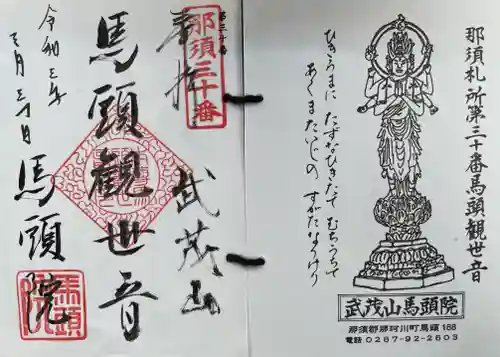 那須札所第三十番馬頭観世音
ひきうまに たずなひきたて むちうちて
あくまたいじの すがたなりけり
武茂山馬頭院
那須郡那珂川町馬頭188
電話0287-92-2603
第三十番
那須三十番
奉拝
武茂山
馬頭觀世音
令和三年
三月三十日
馬頭院
馬頭院